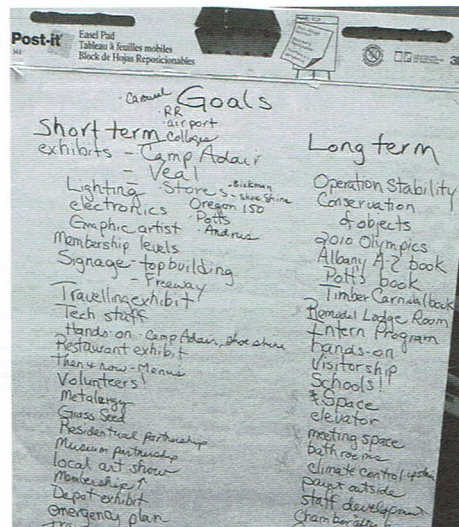 Post-it
Easel Pad
Tableau à feuilles mobiles
Block de Hojas Reposicionables
Goals
· Carousel
· RR
· airport
Colleges
Short term
exhibits - Camp Adair
- Veal
- Stores - Bikman
- shoe shine
Oregon 150
· Potts
· Andrus
Lighting
electronics
Graphic artist
Membership levels
Signage - top building
- Freeway
Travelling exhibit
Tech staff
Hands-on - Camp Adair, shoe shine
Restaurant exhibit
Then & now - Menus
Volunteers!
Metalergy
Grass Seed
Residential partnership
Museum partnership
local art show
Membership ↑
Depot exhibit
emergency plan
Long term
Operation Stability
Conservation
of objects
2010 Olympics
Albany A-Z book
Potts book
Timber Carnival book
Remodel Lodge Room
Intern Program
hands-on
Visitorship
Schools!
Space
elevator
meeting space
bathrooms
climate control
paint outside
staff development